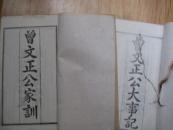 曾文正公家訓
曾文正公大事記